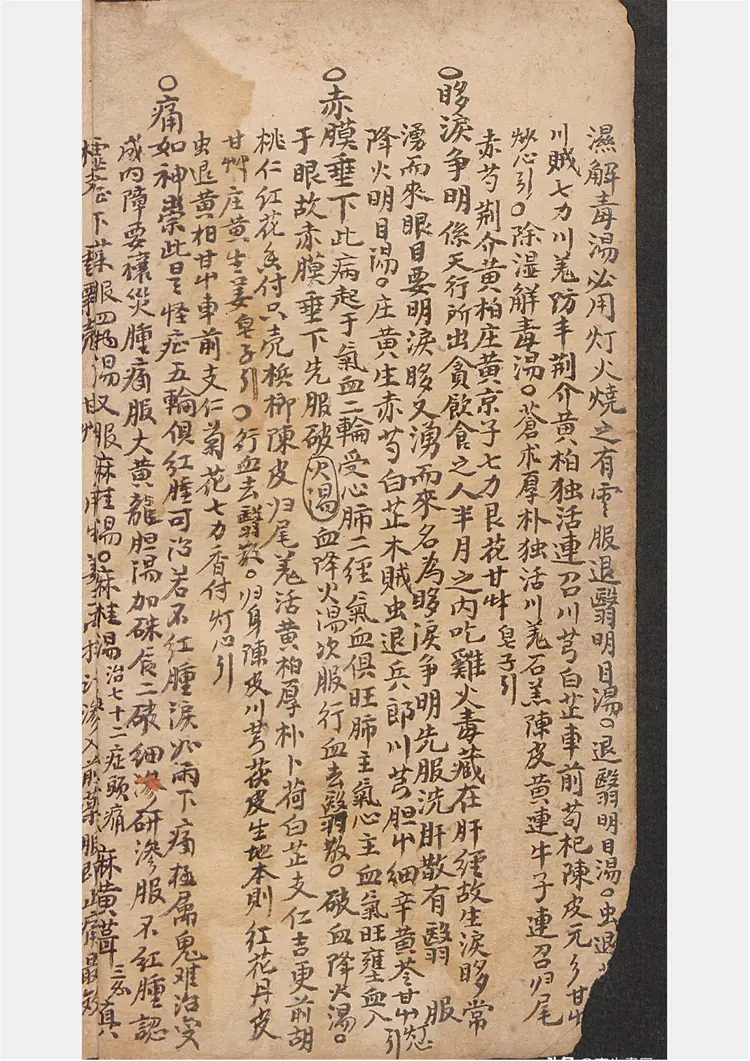 濕解毒湯必用灯火燒之有雲服退翳明目湯○退翳明目湯○虫退
川賊七力川羗防丰荆介黄柏独活連召川芎白芷車前苟杞陳皮元参甘草
炒心引○除湿解毒湯○蒼朮厚朴独活川羗石羔陳皮黄連牛子連召归尾
赤芍荆介黄柏庄黄京子七力艮花甘艸 皂子引
○眵淚争明係天行所出貪飲食之人半月之内吃雞火毒藏在肝經故生淚眵常
湧而來眼目要明淚眵又湧而來名為眵淚争明先服洗肝散有翳 服
降火明目湯○庄黄生赤芍白芷木賊虫退兵郎川芎胆屮細辛黄芩甘屮 引
○赤膜垂下此病起于氣血二輪受心肺二經氣血俱旺肺主氣心主血氣旺壅血入
于眼故赤膜垂下先服破火湯血降火湯次服行血去翳散○破血降火湯○
桃仁紅花香付只壳梹榔陳皮归尾羗活黄柏厚朴卜荷白芷支仁吉更前胡
甘艸庄黄生姜皂子引○行血去翳散○归身陳皮川芎茯皮生地本則紅花丹皮
虫退黄柏甘屮車前支仁菊花七力香付灯心引
○痛如神祟此是怪症五輪俱紅腫可治若不紅腫淚如雨下痛極属鬼难治变
成内障要禳災腫痛服大黄龍胆湯加硃 二破細滲研滲服不紅腫認
症下葯服四物湯又服麻桂湯○麻桂湯治七十二症頭痛 麻黄 真